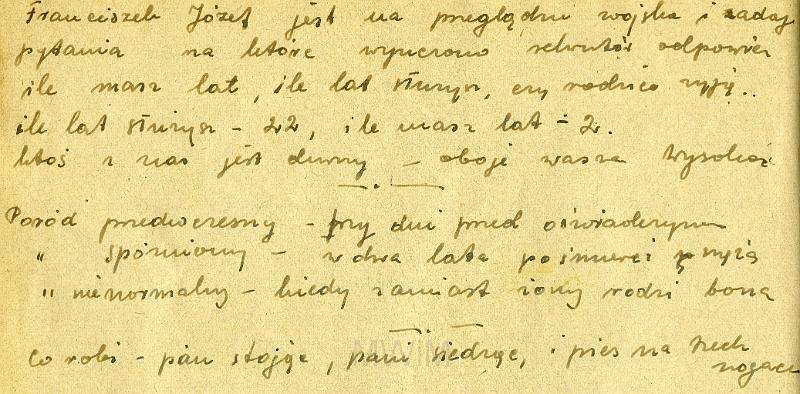 Franciszek Józef jest na przeglądzie wojska i zadaje
pytania na które wyuczono rekrutów odpowiedz
ile masz lat, ile lat służysz, czy rodzice żyją..
ile lat służysz - 22, ile masz lat - 2.
ktoś z nas jest durny - oboje wasza Wysokość
Poród przedwczesny - trzy dni przed oświadczynami
" spóźniony - w dwa lata po śmierci męża
" nienormalny - kiedy zamiast żony rodzi bona
Co robi - pan stojąc, pani siedząc, i pies na trzech
nogach
MWiM